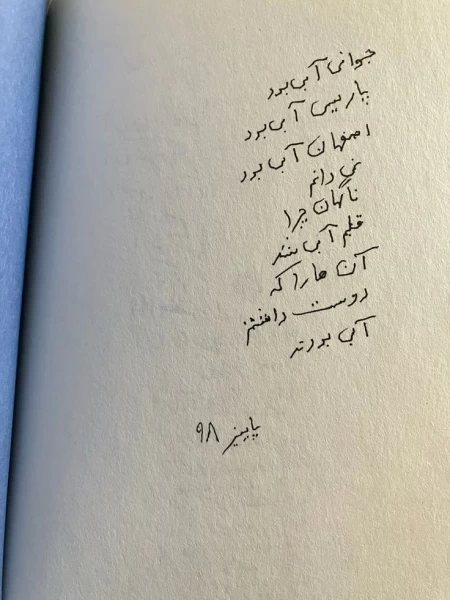 جوانی آبی بود
پاریس آبی بود
اصفهان آبی بود
نمی دانم
ناگهان چرا
قلم آبی شد
آن ها را که
دوست داشتم
آبی بودند
پاییز ۹۸